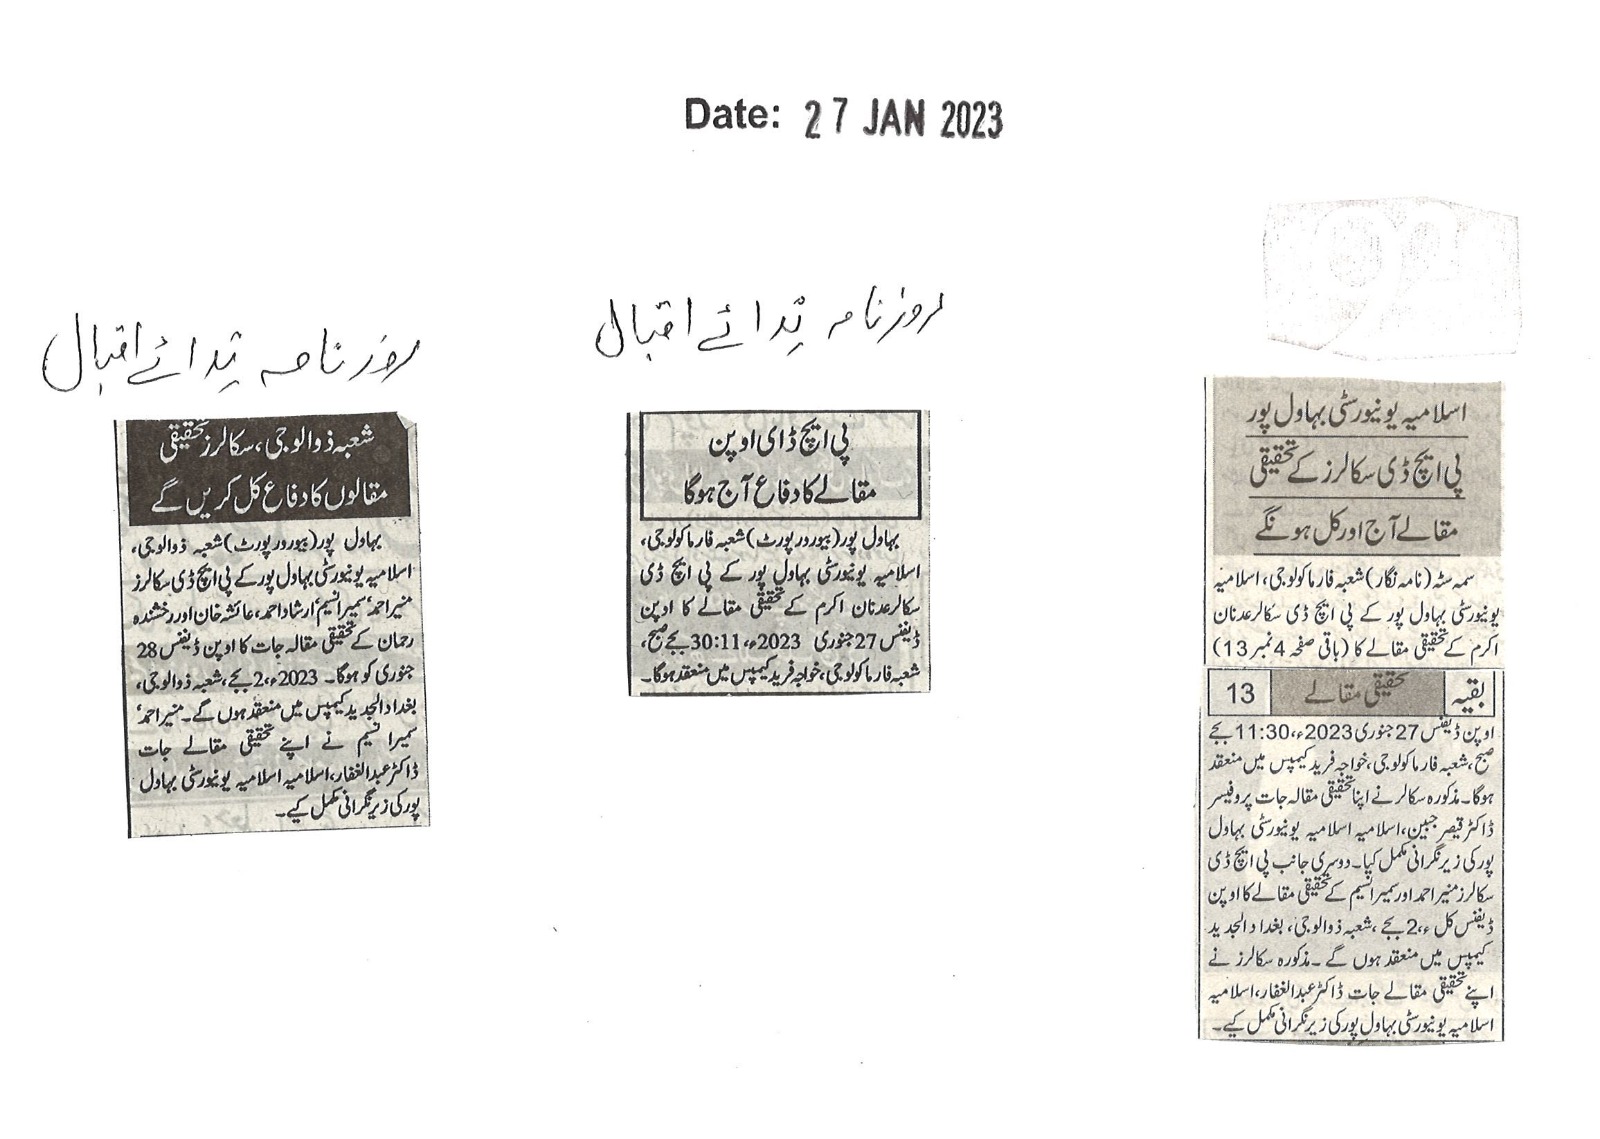 Date: 27 JAN 2023
92
روزنامہ ندائے اقبال
شعبہ ذوالوجی، سکالرز تحقیقی
مقالوں کا دفاع کل کریں گے
بہاول پور (بیورو رپورٹ) شعبہ ذوالوجی،
اسلامیہ یونیورسٹی بہاول پور کے پی ایچ ڈی سکالرز
منیر احمد، سمیرا نسیم، ارشاد احمد، عائشہ خان اور رخشندہ
رحمان کے تحقیقی مقالہ جات کا اوپن ڈیفنس 28
جنوری کو ہوگا۔ 2023ء، 2 بجے، شعبہ ذوالوجی،
بغداد الجدید کیمپس میں منعقد ہوں گے۔ منیر احمد،
سمیرا نسیم نے اپنے تحقیقی مقالے جات
ڈاکٹر عبدالغفار، اسلامیہ اسلامیہ یونیورسٹی بہاول
پور کی زیر نگرانی مکمل کیے۔
روزنامہ ندائے اقبال
پی ایچ ڈای اوپن
مقالے کا دفاع آج ہوگا
بہاول پور (بیورو رپورٹ) شعبہ فارماکولوجی،
اسلامیہ یونیورسٹی بہاول پور کے پی ایچ ڈی
سکالر عدنان اکرم کے تحقیقی مقالے کا اوپن
ڈیفنس 27 جنوری 2023ء، 30:11 بجے صبح،
شعبہ فارماکولوجی، خواجہ فرید کیمپس میں منعقد ہوگا۔
اسلامیہ یونیورسٹی بہاول پور
پی ایچ ڈی سکالرز کے تحقیقی
مقالے آج اور کل ہونگے
سمہ سٹہ (نامہ نگار) شعبہ فارماکولوجی، اسلامیہ
یونیورسٹی بہاول پور کے پی ایچ ڈی سکالر عدنان
اکرم کے تحقیقی مقالے کا (باقی صفحہ 4 نمبر 13)
بقیہ تحقیقی مقالے 13
اوپن ڈیفنس 27 جنوری 2023ء، 11:30 بجے
صبح، شعبہ فارماکولوجی، خواجہ فرید کیمپس میں منعقد
ہوگا۔ مذکورہ سکالر نے اپنا تحقیقی مقالہ جات پروفیسر
ڈاکٹر قیصر جبین، اسلامیہ اسلامیہ یونیورسٹی بہاول
پور کی زیر نگرانی مکمل کیا۔ دوسری جانب پی ایچ ڈی
سکالرز منیر احمد اور سمیرا نسیم کے تحقیقی مقالے کا اوپن
ڈیفنس کل ء، 2 بجے، شعبہ ذوالوجی، بغداد الجدید
کیمپس میں منعقد ہوں گے۔ مذکورہ سکالرز نے
اپنے تحقیقی مقالے جات ڈاکٹر عبدالغفار، اسلامیہ
اسلامیہ یونیورسٹی بہاول پور کی زیر نگرانی مکمل کیے۔